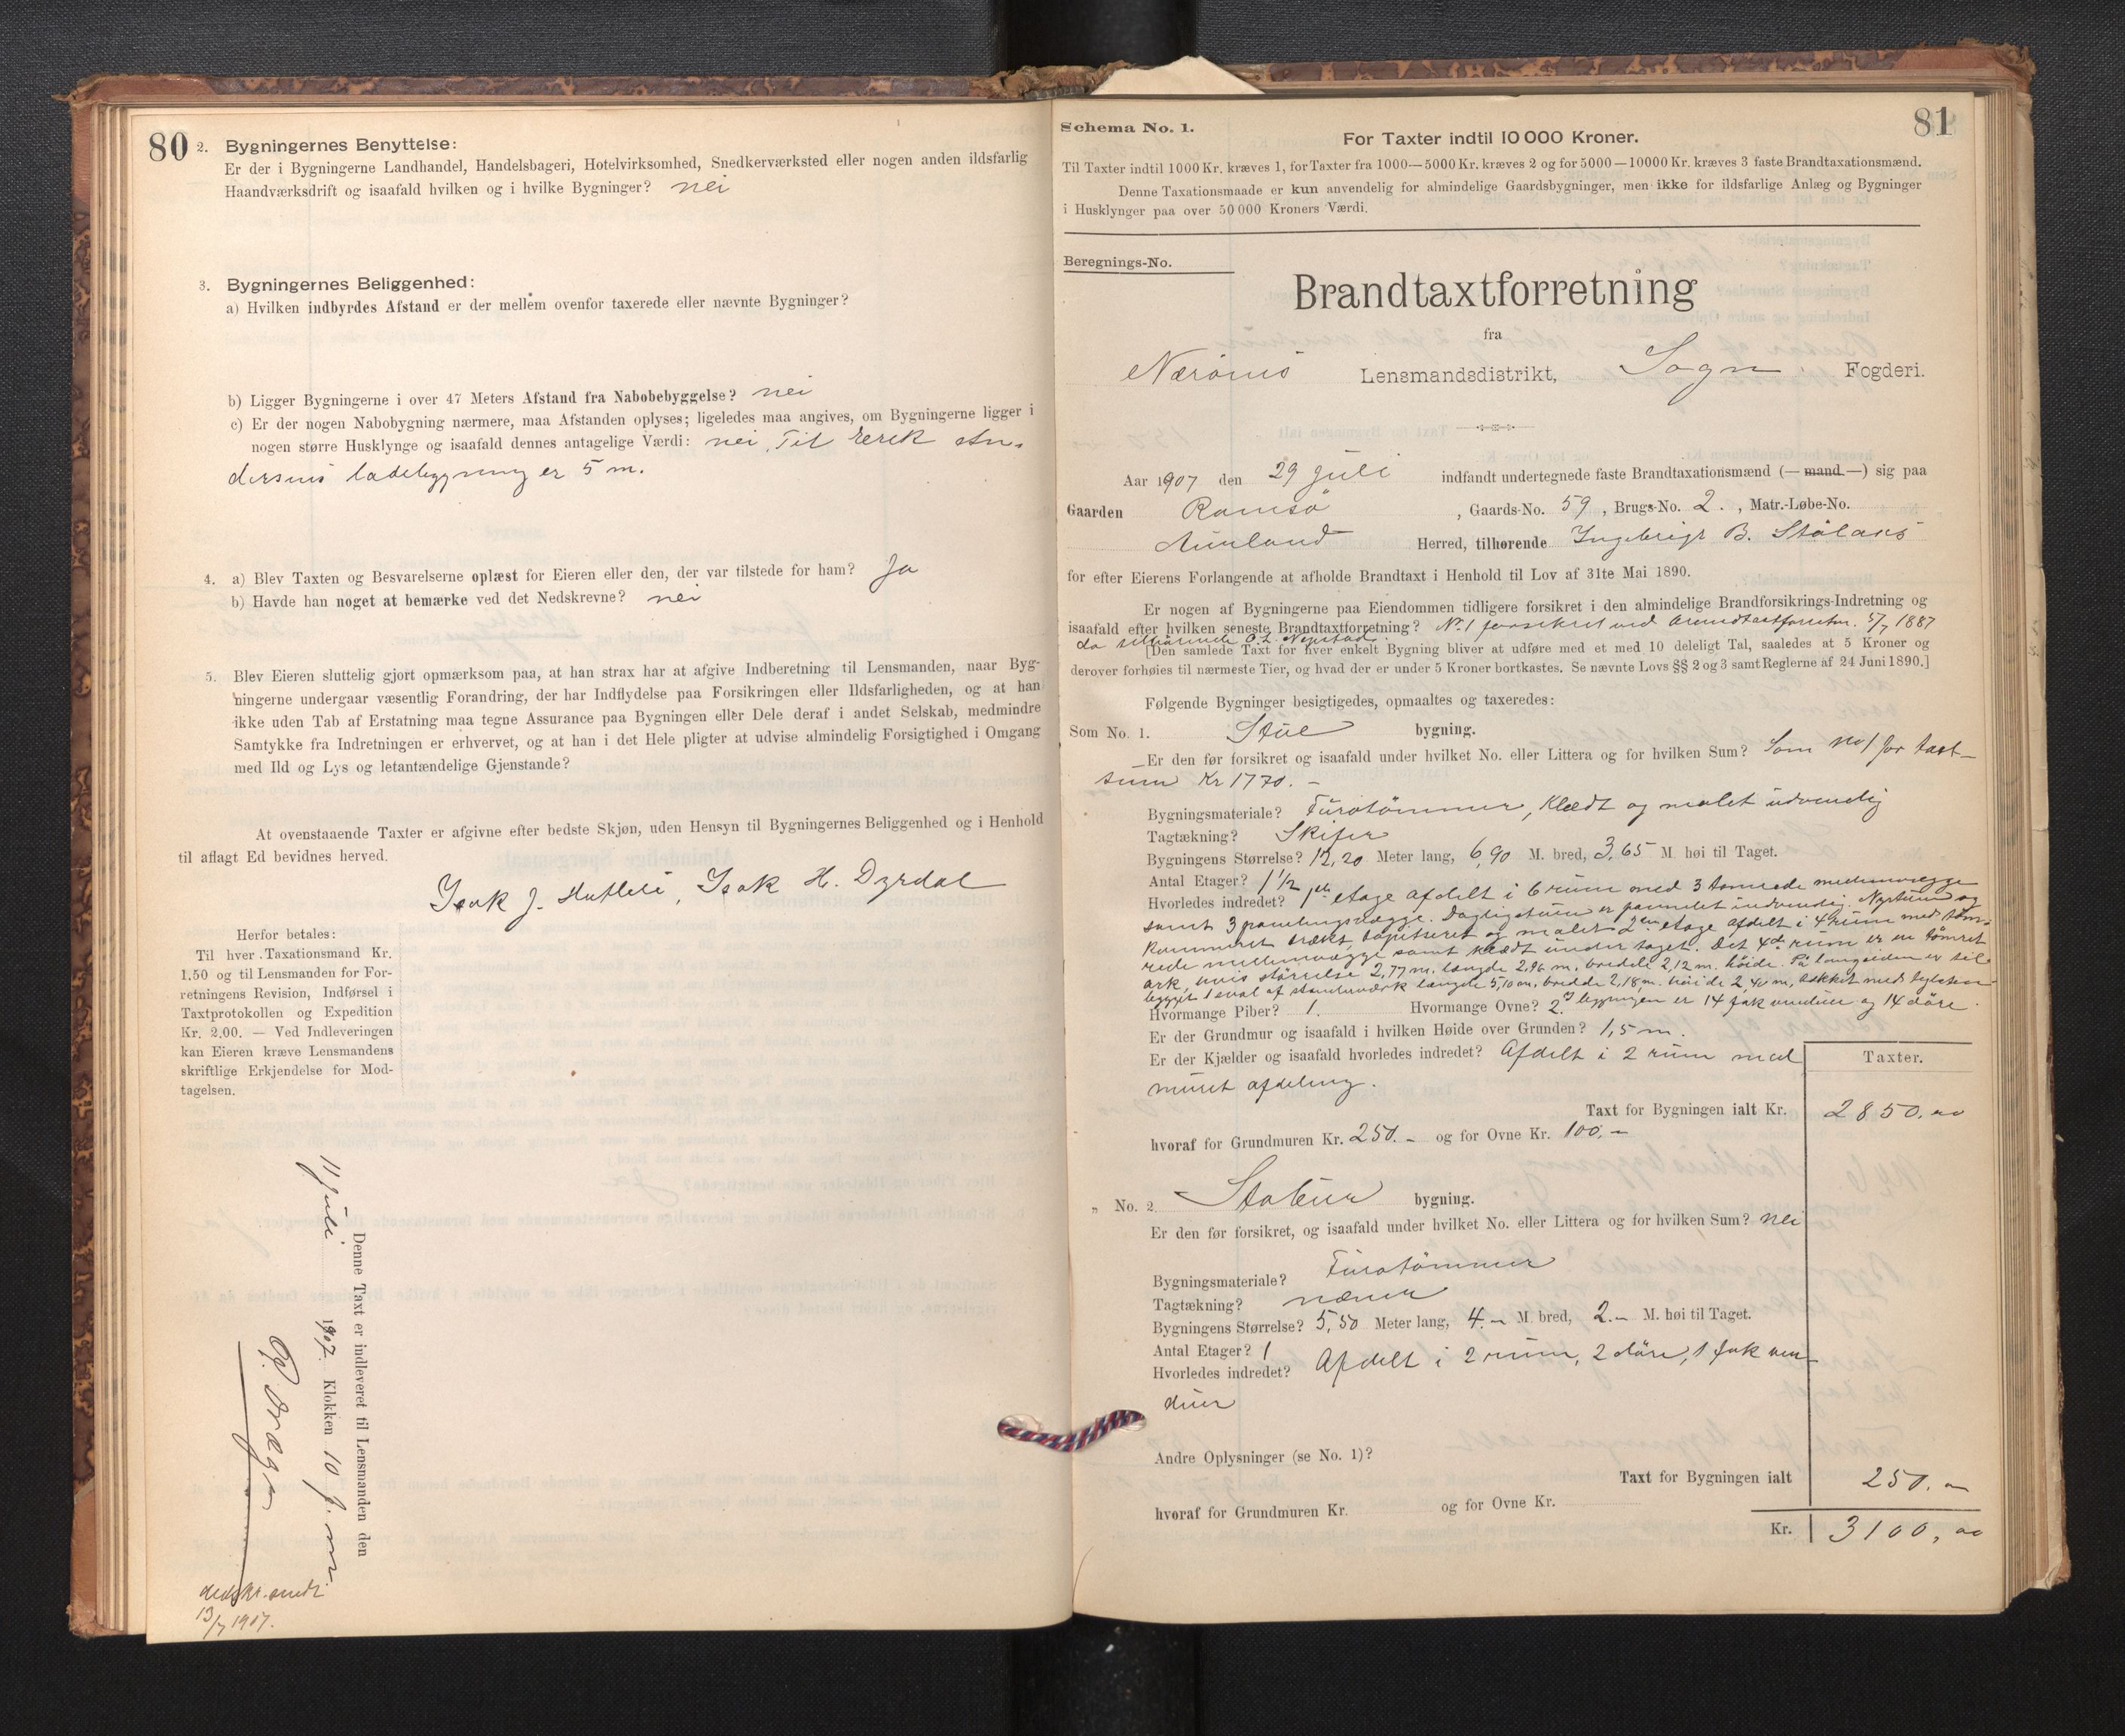 80
2. Bygningernes Benyttelse:
Er der i Bygningerne Landhandel, Handelsbageri, Hotelvirksomhed, Snedkerværksted eller nogen anden ildsfarlig
Haandværksdrift og isaafald hvilken og i hvilke Bygninger? nei
3. Bygningernes Beliggenhed:
a) Hvilken indbyrdes Afstand er der mellem ovenfor taxerede eller nævnte Bygninger?
b) Ligger Bygningerne i over 47 Meters Afstand fra Nabobebyggelse? nei
c) Er der nogen Nabobygning nærmere, maa Afstanden oplyses; ligeledes maa angives, om Bygningerne ligger i
nogen større Husklynge og isaafald dennes antagelige Værdi: nei, Til Eerik An-
dersens ladebygning er 5 m.
4. a) Blev Taxten og Besvarelserne oplæst for Eieren eller den, der var tilstede for ham? Ja
b) Havde han noget at bemærke ved det Nedskrevne? nei
5. Blev Eieren sluttelig gjort opmærksom paa, at han strax har at afgive Indberetning til Lensmanden, naar Byg-
ningerne undergaar væsentlig Forandring, der har Indflydelse paa Forsikringen eller Ildsfarligheden, og at han
ikke uden Tab af Erstatning maa tegne Assurance paa Bygningen eller Dele deraf i andet Selskab, medmindre
Samtykke fra Indretningen er erhvervet, og at han i det Hele pligter at udvise almindelig Forsigtighed i Omgang
med Ild og Lys og letantændelige Gjenstande?
At ovenstaaende Taxter er afgivne efter bedste Skjøn, uden Hensyn til Bygningernes Beliggenhed og i Henhold
til aflagt Ed bevidnes herved.
Isak J. , Isak H. Dyrdal
Herfor betales:
Til hver Taxationsmand Kr.
1.50 og til Lensmanden for For-
retningens Revision, Indførsel i
Taxtprotokollen og Expedition
Kr. 2.00. — Ved Indleveringen
kan Eieren kræve Lensmandens
skriftlige Erkjendelse for Mod-
tagelsen.
Denne Taxt er indleveret til Lensmanden den
11 Juli 1907. Klokken 10 f. m.
13/7 1907.
81
Schema No. 1.
For Taxter indtil 10 000 Kroner.
Til Taxter indtil 1000 Kr. kræves 1, for Taxter fra 1000—5000 Kr. kræves 2 og for 5000—10000 Kr. kræves 3 faste Brandtaxationsmænd.
Denne Taxationsmaade er kun anvendelig for almindelige Gaardsbygninger, men ikke for ildsfarlige Anlæg og Bygninger
i Husklynger paa over 50 000 Kroners Værdi.
Beregnings-No.
Brandtaxtforretning
fra
Nærönes Lensmandsdistrikt, Sogn Fogderi.
Aar 1907 den 29 Juli indfandt undertegnede faste Brandtaxationsmænd (— mand —) sig paa
Gaarden Ramsö, Gaards-No. 59, Brugs-No. 2., Matr.-Løbe-No.
Aurland Herred, tilhørende Ingebrigt B. Stålans
for efter Eierens Forlangende at afholde Brandtaxt i Henhold til Lov af 31te Mai 1890.
Er nogen af Bygningerne paa Eiendommen tidligere forsikret i den almindelige Brandforsikrings-Indretning og
isaafald efter hvilken seneste Brandtaxtforretning? No. 1 forsikret ved brandtaxtforretn. 5/7 1887
da tilhörende O. L.
[Den samlede Taxt for hver enkelt Bygning bliver at udføre med et med 10 deleligt Tal, saaledes at 5 Kroner og
derover forhøies til nærmeste Tier, og hvad der er under 5 Kroner bortkastes. Se nævnte Lovs §§ 2 og 3 samt Reglerne af 24 Juni 1890.]
Følgende Bygninger besigtigedes, opmaaltes og taxeredes:
Som No. 1. Stue bygning.
Er den før forsikret og isaafald under hvilket No. eller Littera og for hvilken Sum? Som No 1 for taxt-
sum Kr 1770. –
Bygningsmateriale? Furutömmer, klædt og malet udvendig
Tagtækning? Skifer
Bygningens Størrelse? 12,20 Meter lang, 6,90 M. bred, 3,65 M. høi til Taget.
Antal Etager? 1 1/2
Hvorledes indredet? 1ste etage afdelt i 6 rum med 3 tømrede mellemvægge
samt 3 panelingsvægge. Dagligstuen er panelet indvendig. Nystuen og
kammeret trækt, tapitseret og malet 2den etage afdelt i 4 rum med töm-
rede mellemvægge samt klædt under taget. Det 4de rum er en tömret
ark, hvis störrelse 2,77 m. længde 2,96 m. bredde 2,12 m. höide. På langsiden er til-
bygget 1 sval af stænderværk længde 5,10 m. bredde 2,18 m. höide 2,40 m, tækket med
bygningen er 14 fak vinduer og 14 döre.
Hvormange Piber? 1. Hvormange Ovne? 2.
Er der Grundmur og isaafald i hvilken Høide over Grunden? 1,5 m.
Er der Kjælder og isaafald hvorledes indredet? Afdelt i 2 rum med
muret afdeling.
Taxter.
Taxt for Bygningen ialt Kr. 2850.00
hvoraf for Grundmuren Kr. 250.– og for Ovne Kr. 100.–
„ No. 2. Stabur bygning.
Er den før forsikret, og isaafald under hvilket No. eller Littera og for hvilken Sum? nei
Bygningsmateriale? Furutömmer
Tagtækning? næver
Bygningens Størrelse? 5,50 Meter lang, 4.– M. bred, 2.– M. høi til Taget.
Antal Etager? 1
Hvorledes indredet? Afdelt i 2 rum, 2 döre, 1 fak vin-
duer
Andre Oplysninger (se No. 1)?
Taxt for Bygningen ialt 250.–
hvoraf for Grundmuren Kr. og for Ovne Kr.
Kr. 3100,00